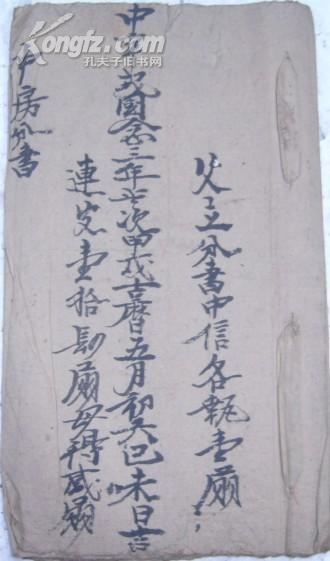 父立分書中信各執壹扇
中華民國念三年歲次甲戌古曆五月初六己未日吉
連炭壹拾扇毋得威
房分書
Kongfz.com
孔夫子旧书网